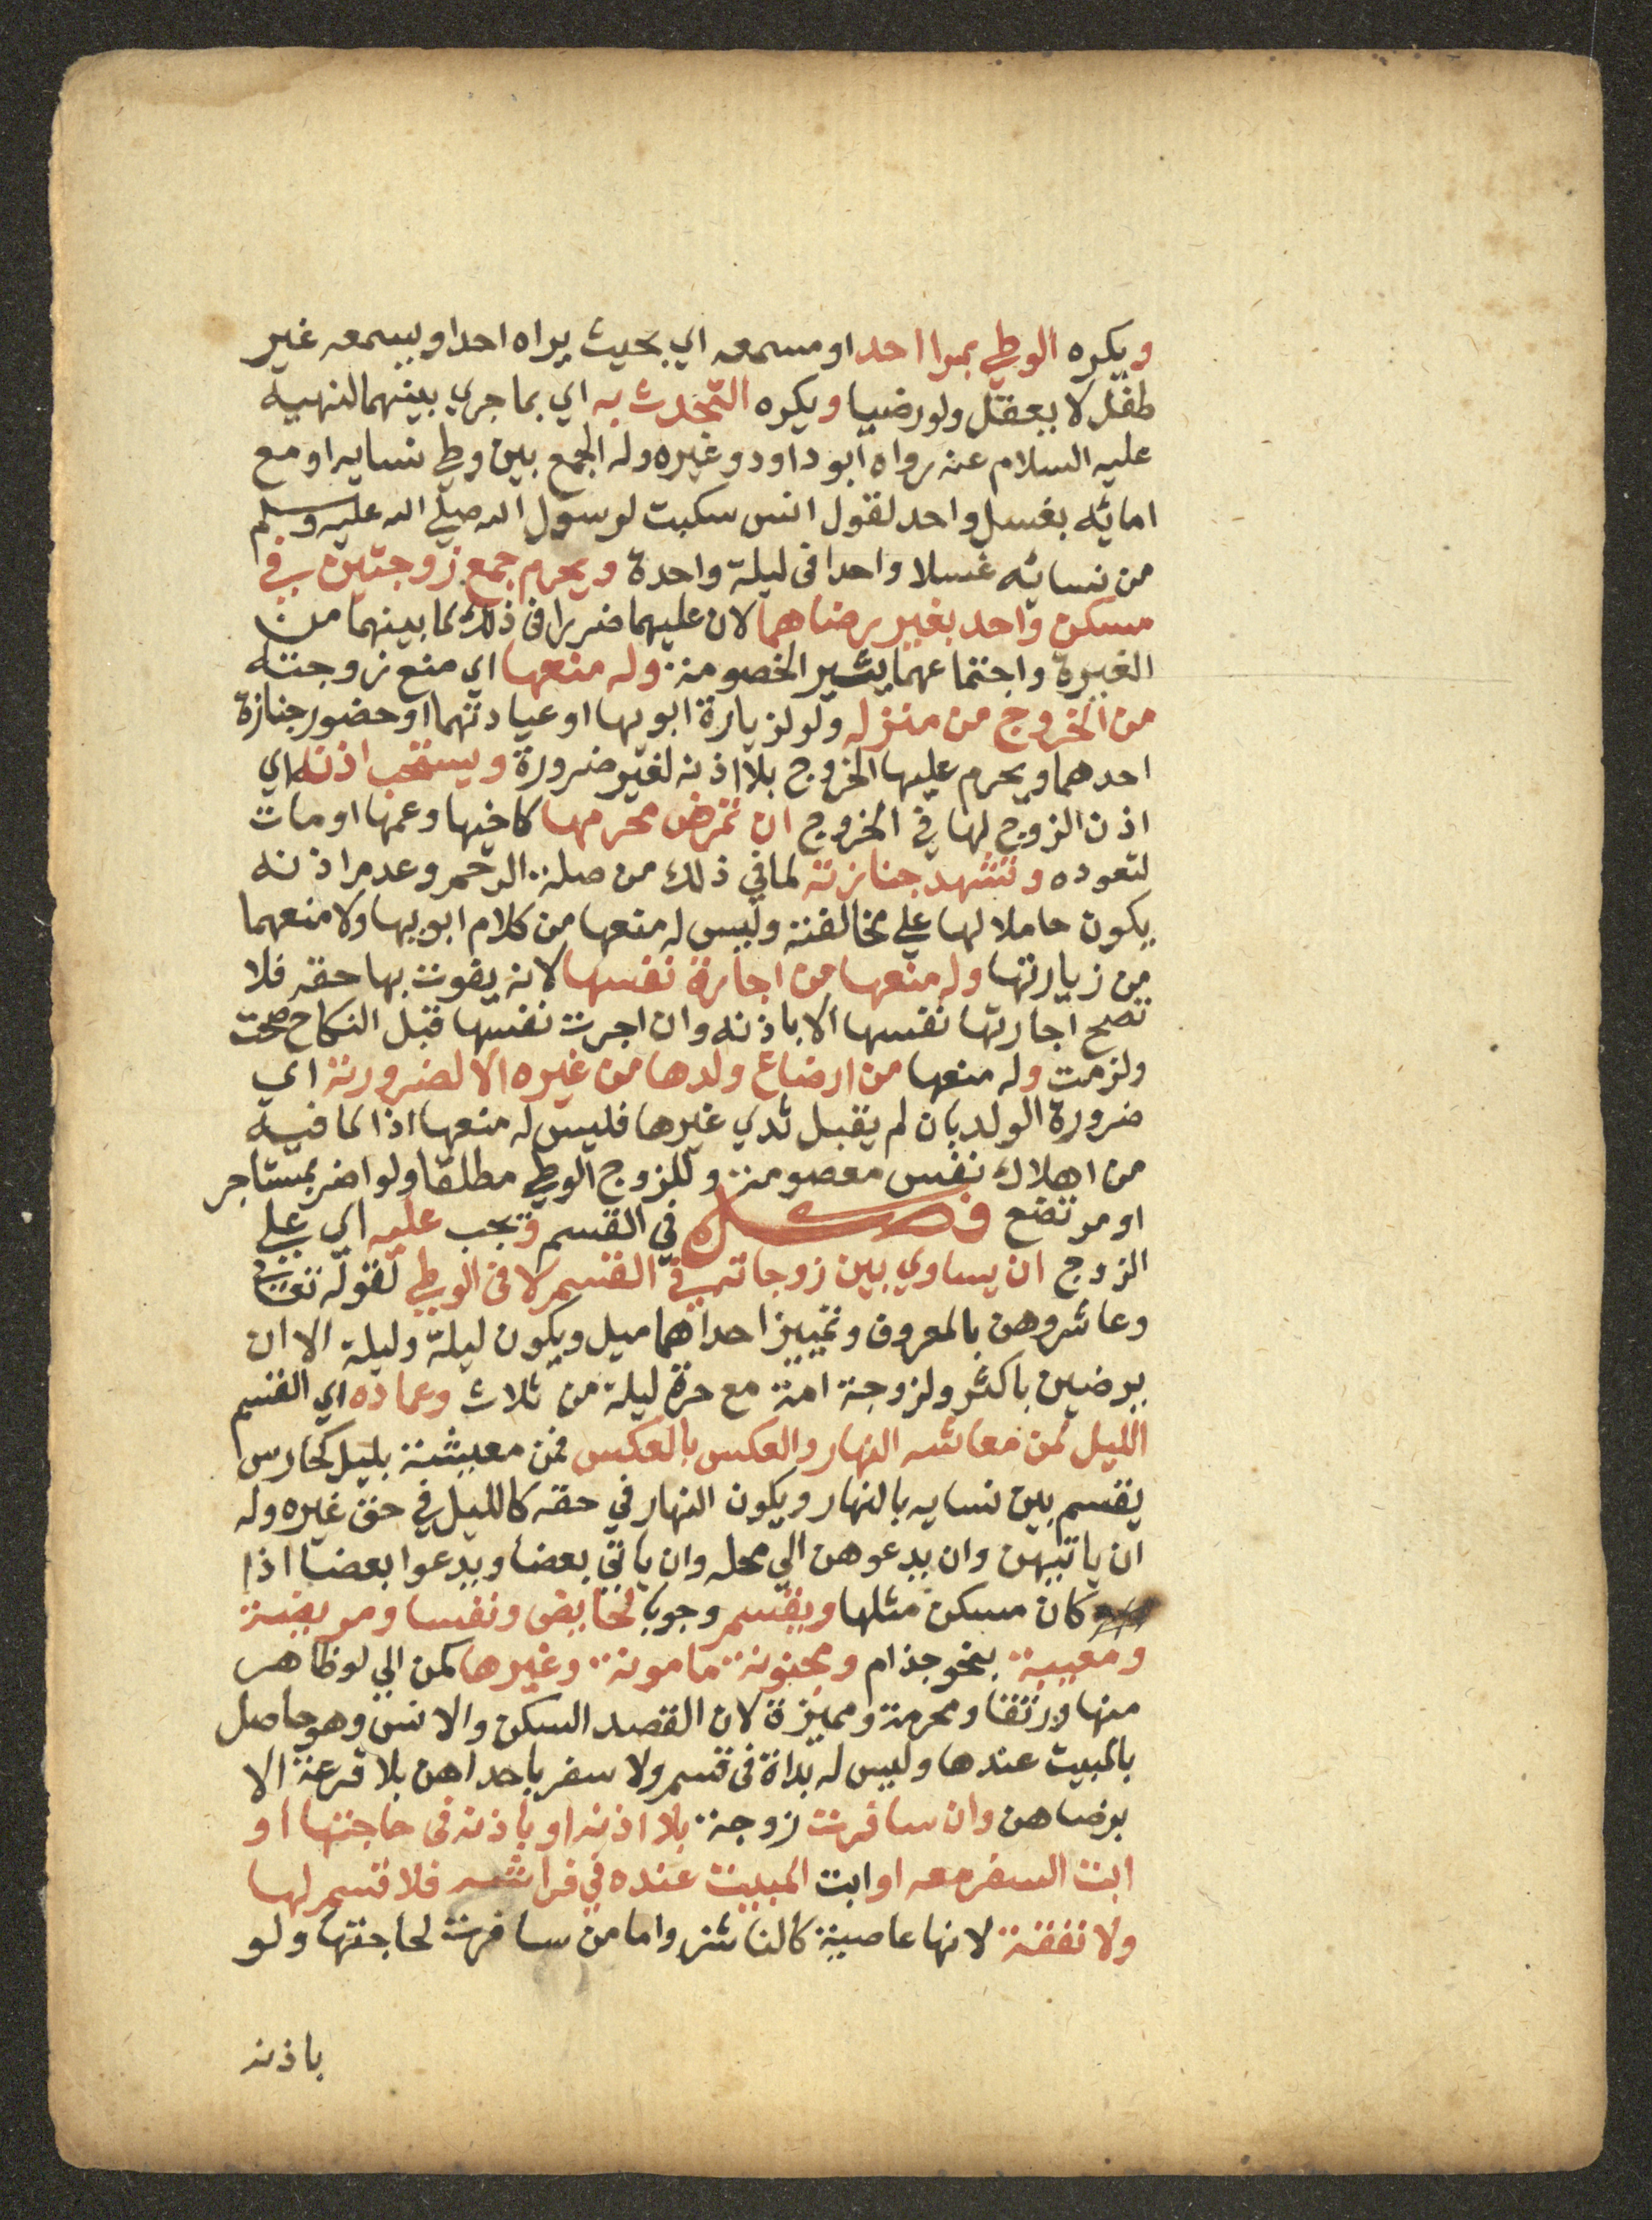 ويكره الوطي بمرا احد او مسمعه اي بحيث يراه احد او يسمعه غير
طفل لا يعقل ولو رضيا ويكره التحدث به اي بما جري بينهما لنهيه
عليه السلام عنه رواه ابو داود وغيره وله الجمع بين وطي نسايه او مع
امائه بغسل واحد لقول انس سكبت لرسول الله صلي الله عليه وسلم
من نسائه غسلا واحدا في ليلة واحدة ويحرم جمع زوجتين في
مسكن واحد بغير رضاهما لان عليهما ضررا في ذلك لما بينهما من
الغيرة واجتماعهما يثير الخصومة وله منعها اي منع زوجته
من الخروج من منزله ولو لزيارة ابويها او عيادتهما او حضور جنازة
احدهما ويحرم عليها الخروج بلا اذنه لغير ضرورة ويستحب اذنه اي
اذن الزوج لها في الخروج ان تمرض محرمها كاخيها وعمها او مات
لتعوده وتشهد جنازته لما في ذلك من صلة الرحم وعدم اذنه
يكون حاملا لها علي مخالفته وليس له منعها من كلام ابويها ولا منعهما
من زيارتها وله منعها من اجارة نفسها لانه يفوت بها حقه فلا
تصح اجارتها نفسها الا باذنه وان اجرت نفسها قبل النكاح صحت
ولزمت وله منعها من ارضاع ولدها من غيره الا لضرورته اي
ضرورة الولد بان لم يقبل ثدي غيرها فليس له منعها اذا لما فيه
من اهلاك نفس معصومة وللزوج الوطي مطلقا ولو اضر بمستاجر
او مرتضع فصل في القسم ويجب عليه اي علي
الزوج ان يساوي بين زوجاته في القسم لا في الوطي لقوله تعالى
وعاشروهن بالمعروف وتمييز احداهما ميل ويكون ليلة وليلة الا ان
يرضين باكثر ولزوجة امة مع حرة ليلة من ثلاث وعماده اي القسم
الليل لمن معاشه النهار والعكس بالعكس فمن معيشته بليل كحارس
يقسم بين نسايه بالنهار ويكون النهار في حقه كالليل في حق غيره وله
ان ياتيهن وان يدعوهن الي محله وان ياتي بعضا ويدعوا بعضا اذا
كان مسكن مثلها ويقسم وجوبا لحايض ونفسا ومريضة
ومعيبة بنحو جذام ومجنونة مامونة وغيرها كمن الي او ظاهر
منها ورتقا ومحرمة ومميزة لان القصد السكن والانس وهو حاصل
بالمبيت عندها وليس له بداة في قسم ولا سفر باحداهن بلا قرعة الا
برضاهن وان سافرت زوجة بلا اذنه او باذنه في حاجتها او
ابت السفر معه او ابت المبيت عنده في فراشه فلا قسم لها
ولا نفقة لانها عاصية كالناشز واما من سافرت لحاجتها ولو
باذنه